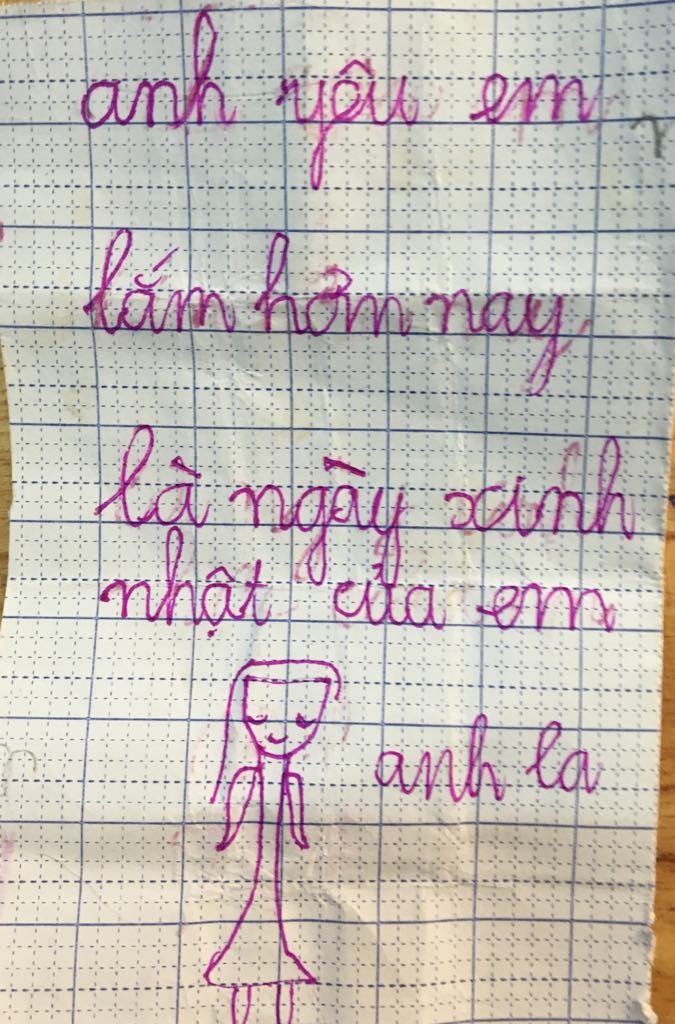 anh yêu em
lắm hôm nay
là ngày xinh
nhật của em
anh la